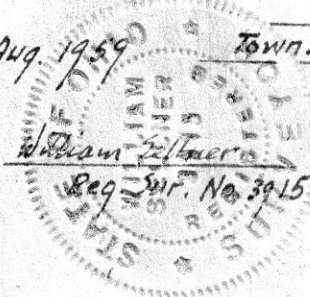 Aug. 1959
Town.
William
Reg. Sur. No. 3915
STATE OF OHIO
WILLIAM
REGISTERED
SURVEYOR